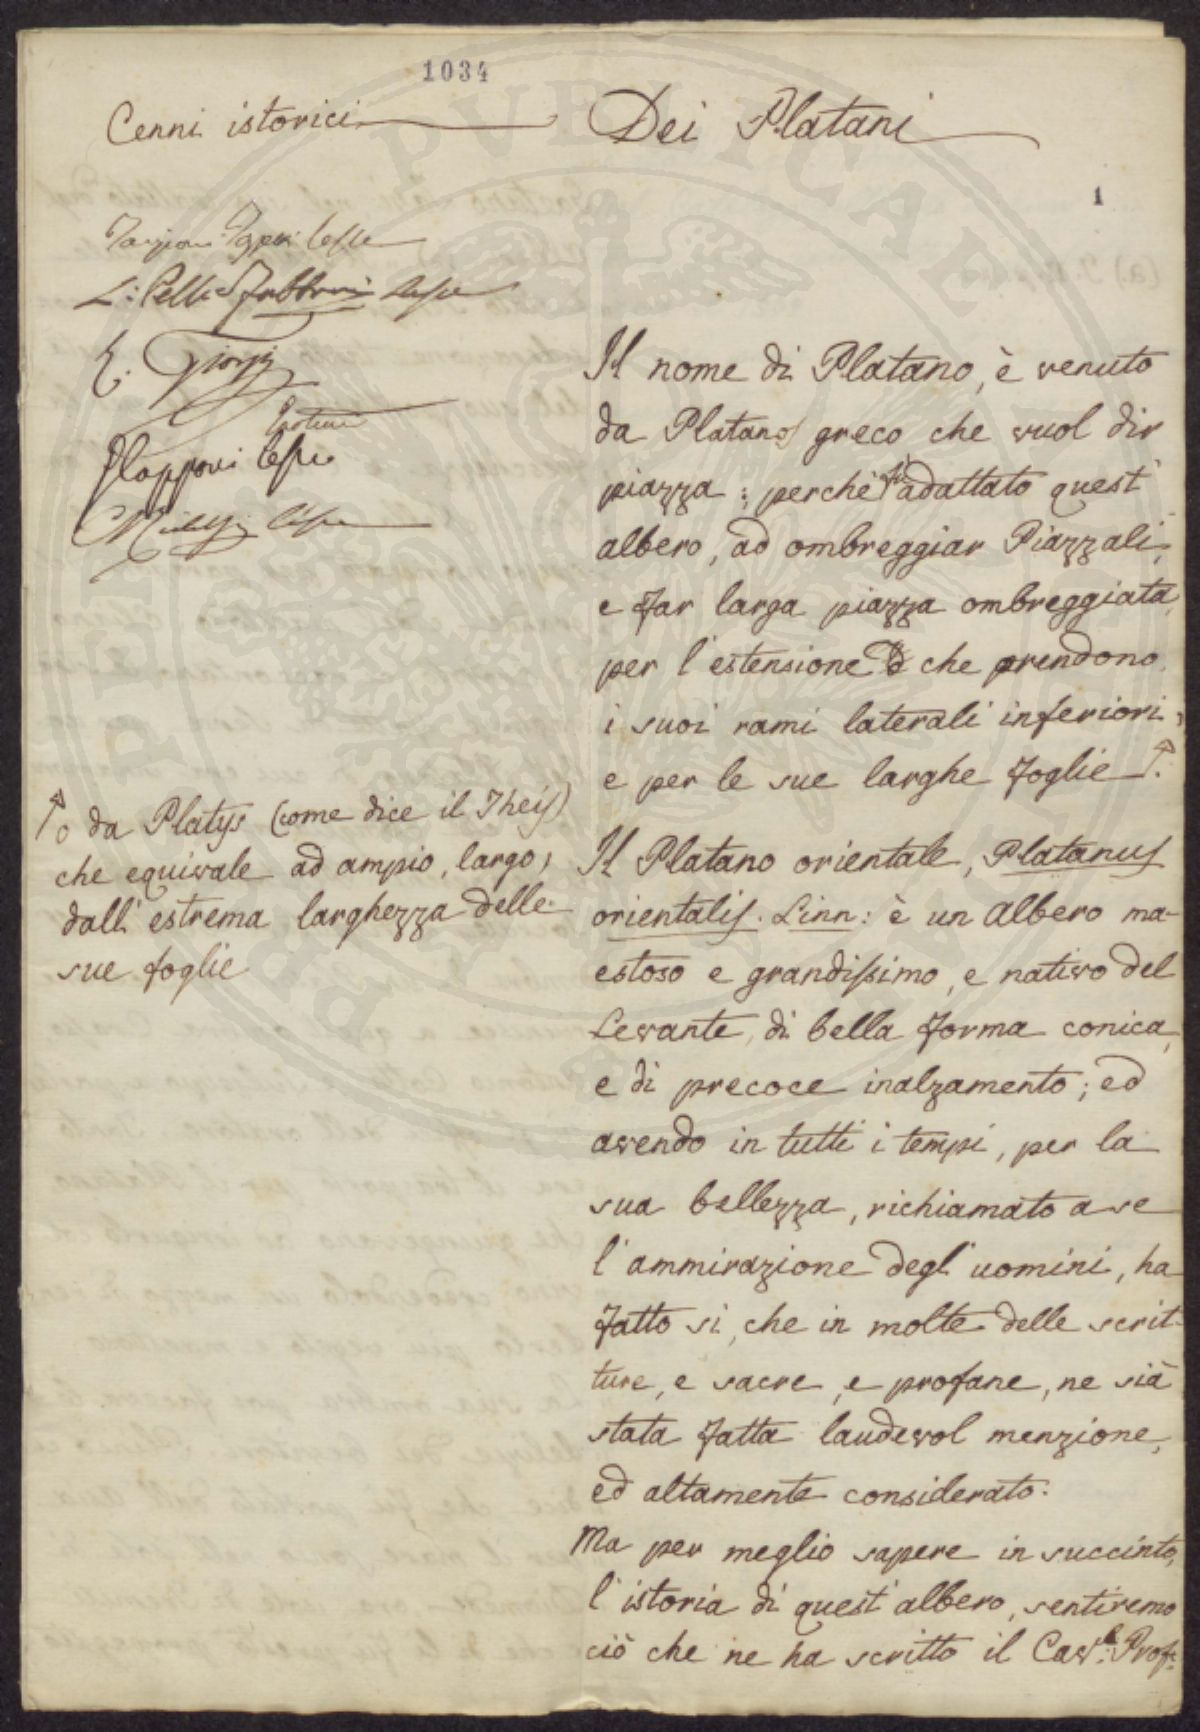 1034
Cenni istorici
Dei Platani
1
lesse
L: Pelli Fabbroni lesse
Il nome di Platano, è venuto
da Platanos greco che vuol dir
piazza; perchè si adattato quest'
albero, ad ombreggiar Piazzali,
e far larga piazza ombreggiata,
per l'estensione che prendono
i suoi rami laterali inferiori,
e per le sue larghe foglie.
o da Platys (come dice il Theis)
che equivale ad ampio, largo,
dall' estrema larghezza delle
sue foglie
Il Platano orientale, Platanus
orientalis. Linn: è un albero ma-
estoso e grandissimo, e nativo del
Levante, di bella forma conica,
e di precoce inalzamento; ed
avendo in tutti i tempi, per la
sua bellezza, richiamato a se
l'ammirazione degl' uomini, ha
fatto si, che in molte delle scrit-
ture, e sacre, e profane, ne sià
stata fatta laudevol menzione,
ed altamente considerato.
Ma per meglio sapere in succinto,
l'istoria di quest' albero, sentiremo
ciò che ne ha scritto il Cav.e Prof:
PVBLICAE